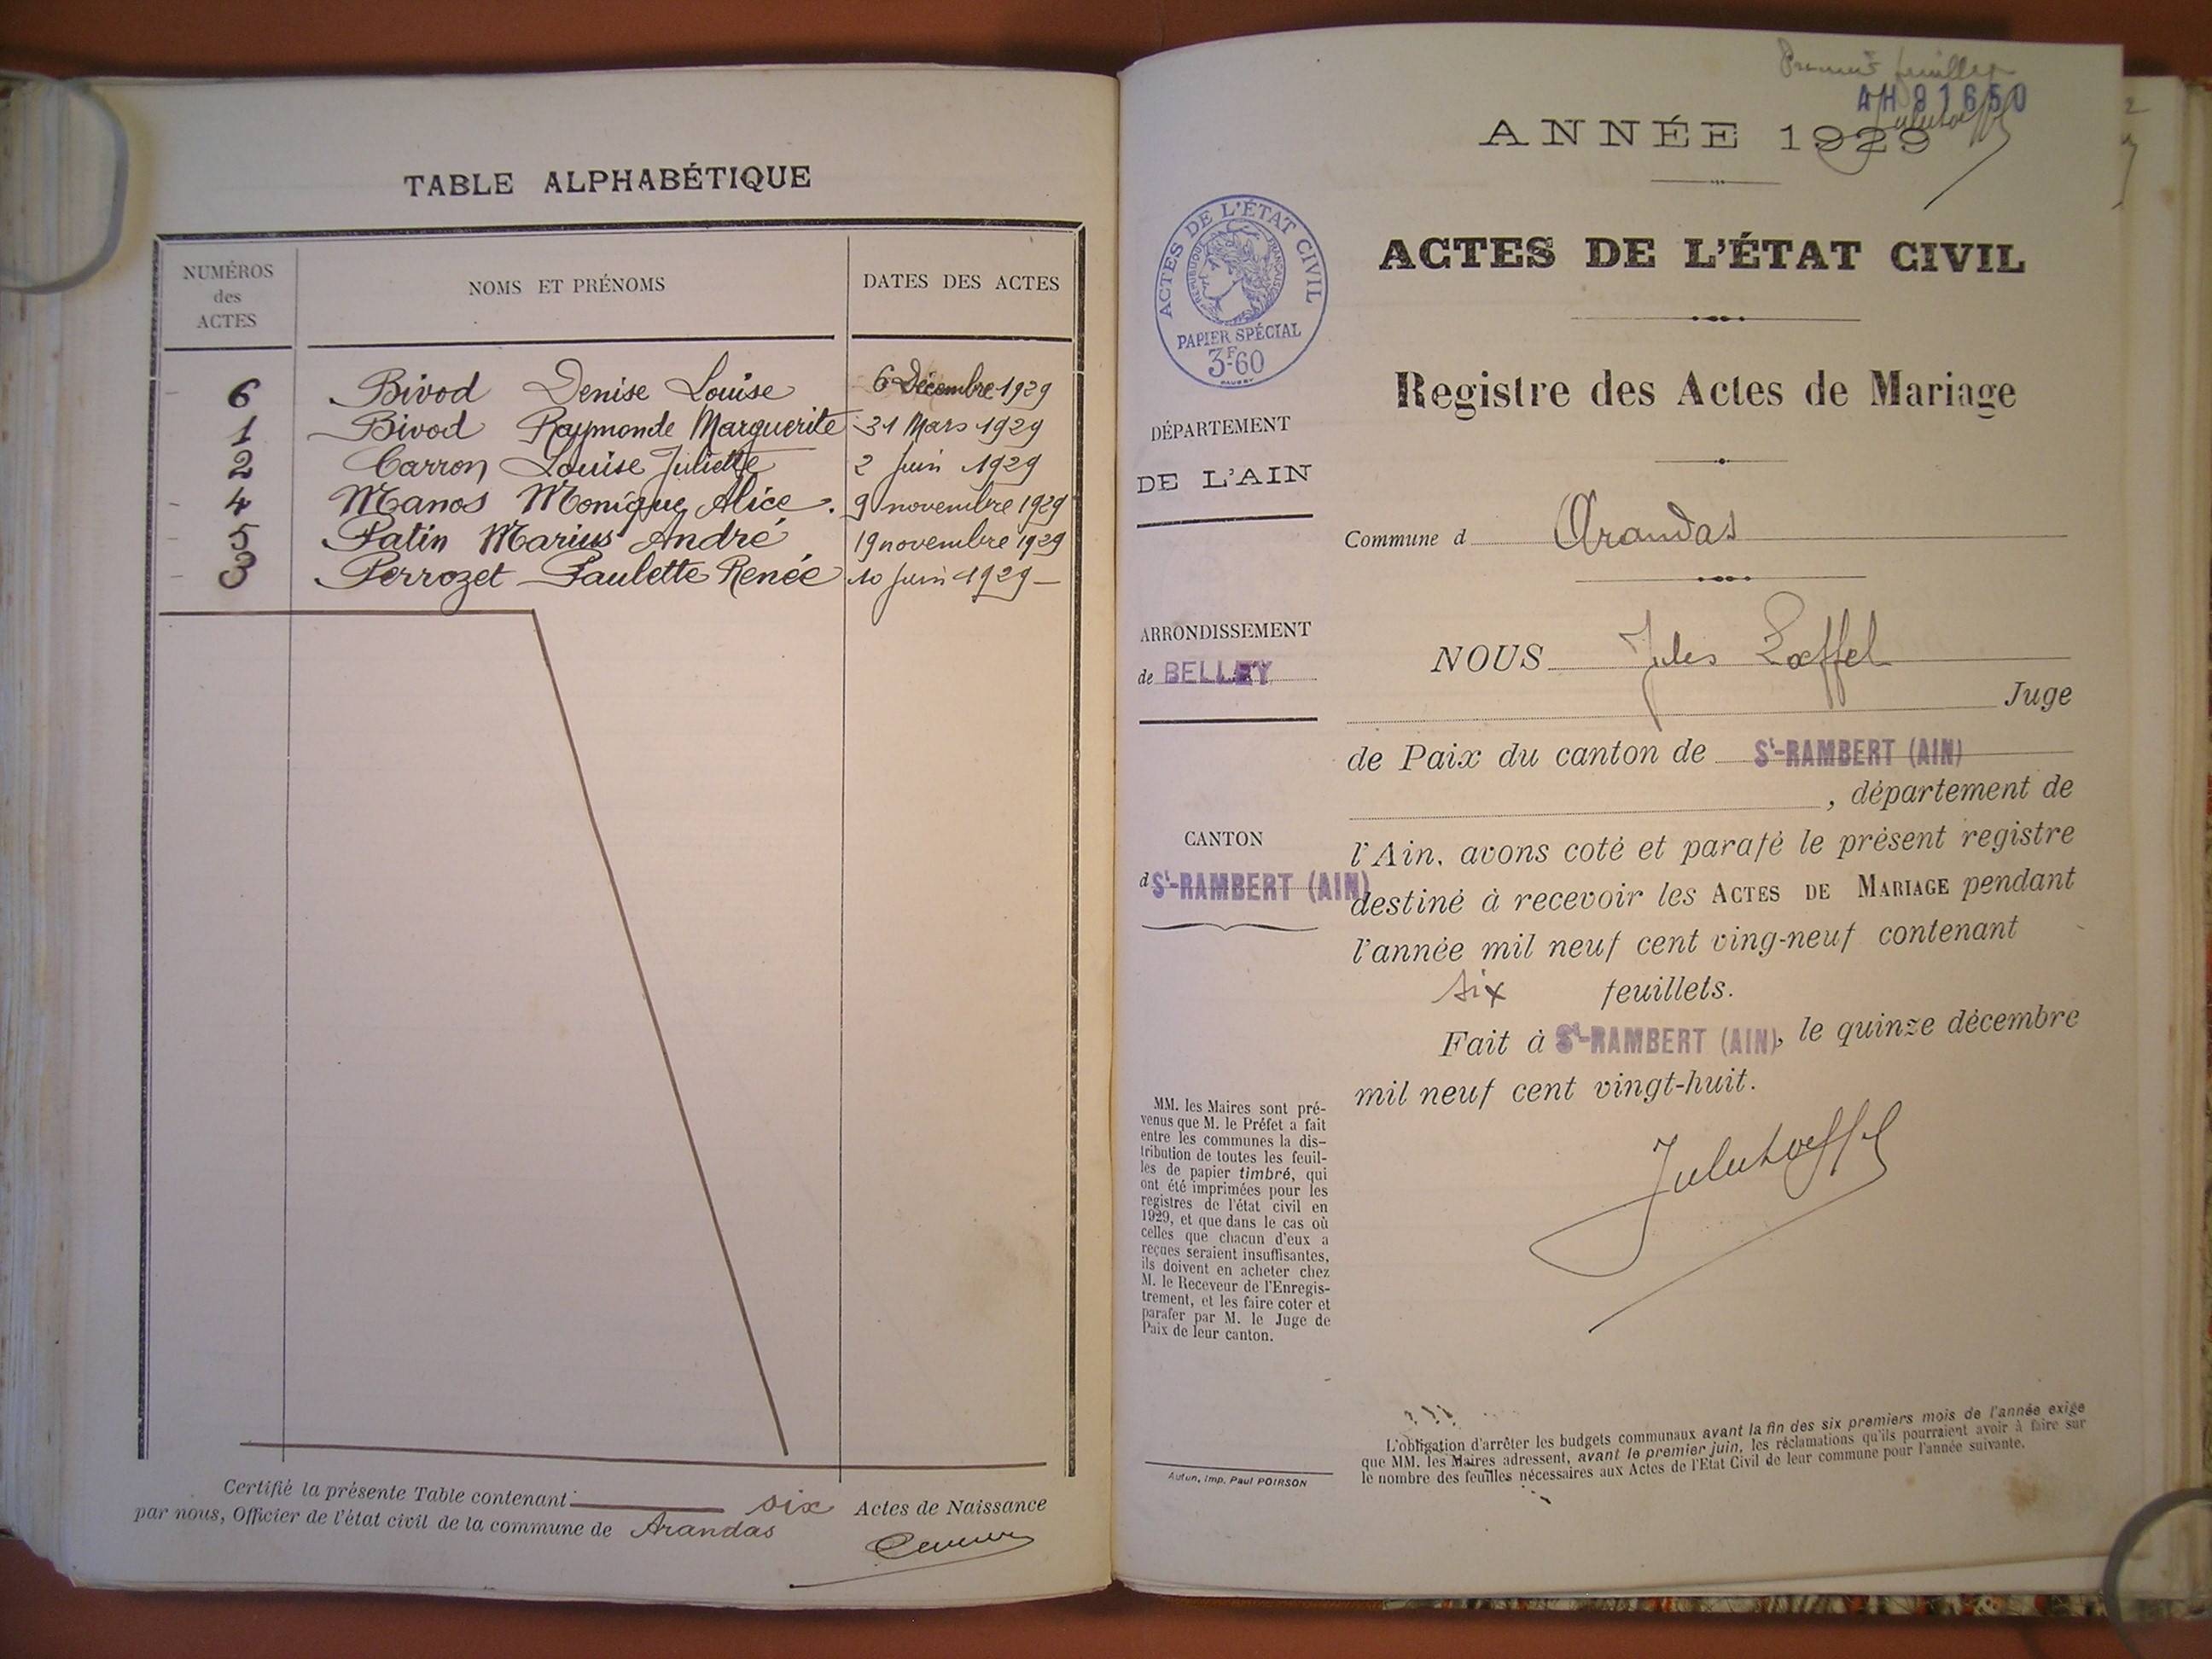 TABLE ALPHABÉTIQUE
NUMÉROS
des
ACTES
NOMS ET PRÉNOMS
DATES DES ACTES
6 Bivod Denise Louise 6 Décembre 1929
1 Bivod Raymonde Marguerite 31 Mars 1929
2 Carron Louise Juliette 2 Juin 1929
4 Manos Monique Alice. 9 novembre 1929
5 Patin Marius André 19 novembre 1929
3 Perrozet Paulette Renée 10 Juin 1929
Certifié la présente Table contenant six Actes de Naissance
par nous, Officier de l'état civil de la commune de Arandas
Premier feuillet
4H 81650
ANNÉE 1929
ACTES DE L'ÉTAT CIVIL
RÉPUBLIQUE FRANÇAISE
PAPIER SPÉCIAL
3F60
DÉPARTEMENT
DE L'AIN
ARRONDISSEMENT
de BELLEY
CANTON
d St-RAMBERT (AIN)
MM. les Maires sont pré-
venus que M. le Préfet a fait
entre les communes la dis-
tribution de toutes les feuil-
les de papier timbré, qui
ont été imprimées pour les
registres de l'état civil en
1929, et que dans le cas où
celles que chacun d'eux a
reçues seraient insuffisantes,
ils doivent en acheter chez
M. le Receveur de l'Enregis-
trement, et les faire coter et
parafer par M. le Juge de
Paix de leur canton.
Autun, Imp. Paul POIRSON
ACTES DE L'ÉTAT CIVIL
Registre des Actes de Mariage
Commune d Arandas
NOUS Jules Lœffel
Juge
de Paix du canton de St-RAMBERT (AIN)
, département de
l'Ain, avons coté et parafé le présent registre
destiné à recevoir les ACTES DE MARIAGE pendant
l'année mil neuf cent ving-neuf contenant
six feuillets.
Fait à St-RAMBERT (AIN), le quinze décembre
mil neuf cent vingt-huit.
Jules Lœffel
L'obligation d'arrêter les budgets communaux avant la fin des six premiers mois de l'année exige
que MM. les Maires adressent, avant le premier juin, les réclamations qu'ils pourraient avoir à faire sur
le nombre des feuilles nécessaires aux Actes de l'Etat Civil de leur commune pour l'année suivante.